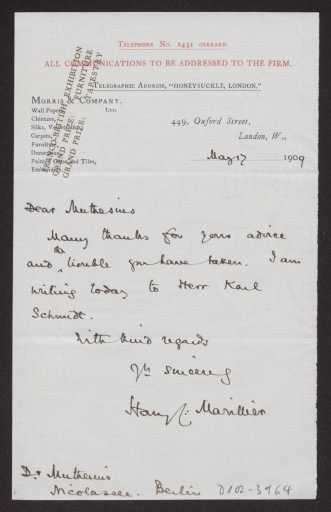 TELEPHONE No. 2431 GERRARD.
ALL COMMUNICATIONS TO BE ADDRESSED TO THE FIRM.
TELEGRAPHIC ADDRESS, "HONEYSUCKLE, LONDON,"
MORRIS & COMPANY,
LTD.
Wall Papers,
Chintzes,
Silks,
Carpets,
Furniture,
Painted Glass and Tiles,
FRANCO-BRITISH EXHIBITION
GRAND PRIZE: FURNITURE
GRAND PRIZE: TAPESTRY
449, Oxford Street,
London, W.,
May 17 1909
Dear Muthesius
Many thanks for your advice
and the trouble you have taken. I am
writing today to Herr Karl
Schmidt.
With kind regards
Yrs sincerely
Harry C. Marillier
Dr Muthesius
Nicolassee. Berlin D102-3964